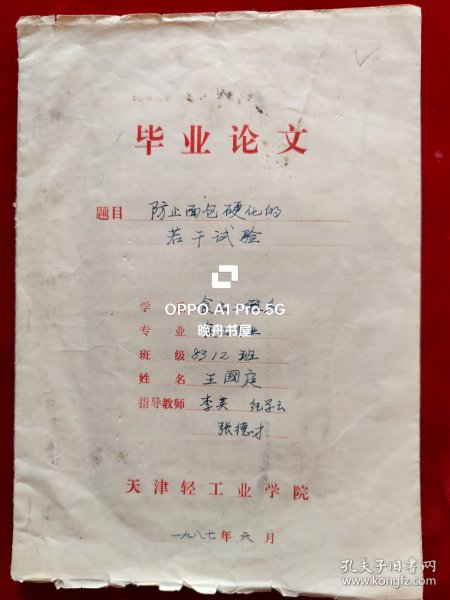 毕业论文
题目 防止面包硬化的
若干试验
OPPO A1 Pro·5G
晚舟书屋
学
专业
班级 8312班
姓名 王國庭
指导教师 李英
张德才
天津轻工业学院
一九八七年六月
孔夫子旧书网
www.kongfz.com